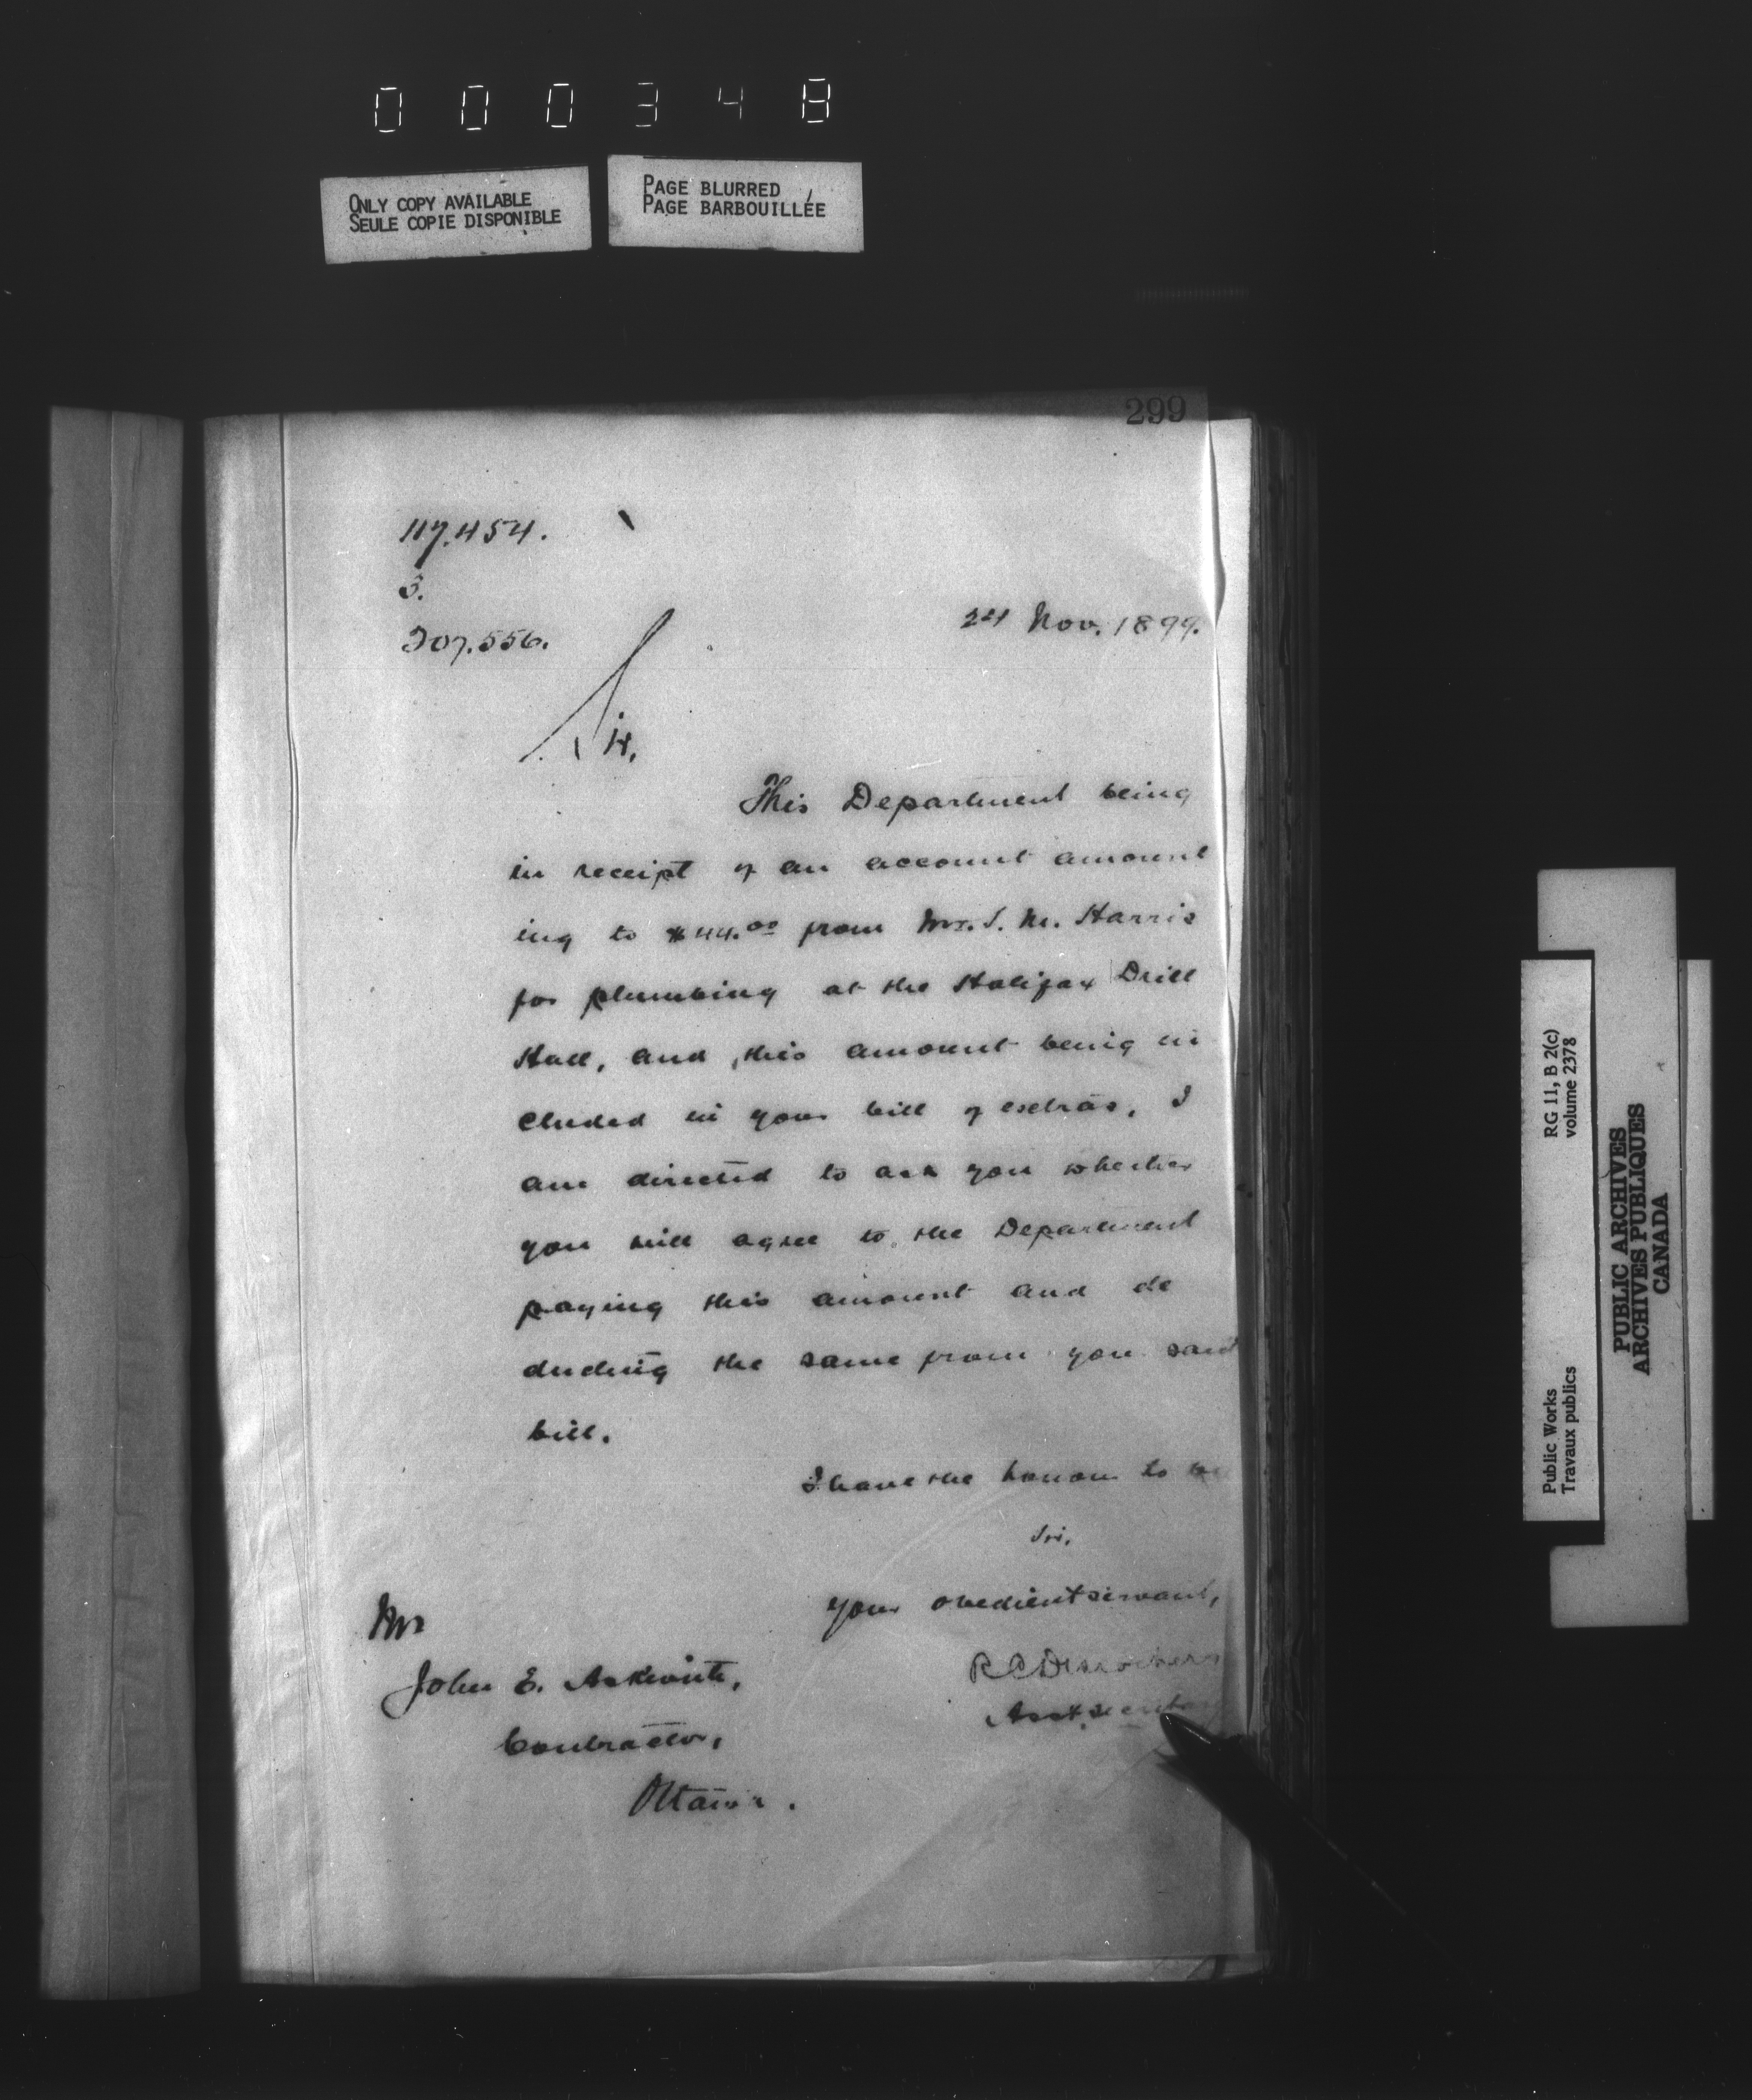 000348
ONLY COPY AVAILABLE
SEULE COPIE DISPONIBLE
PAGE BLURRED
PAGE BARBOUILLÉE
299
117.454.
S.
207.556.
24 Nov. 1899.
Sir,
This Department being
in receipt of an account amount
ing to $44.00 from Mr. J. M. Harris
for plumbing at the Halifax Drill
Hall, and this amount being in
cluded in your bill of extras, I
am directed to ask you whether
you will agree to the Department
paying this amount and de
ducting the same from you said
bill.
I have the honour to be
Sir,
Your obedient servant,
R C Desrochers
Asst Secretary
Mr
John E. Askwith,
Contractor,
Ottawa.
RG 11, B 2(c)
volume 2378
Public Works
Travaux publics
PUBLIC ARCHIVES
ARCHIVES PUBLIQUES
CANADA